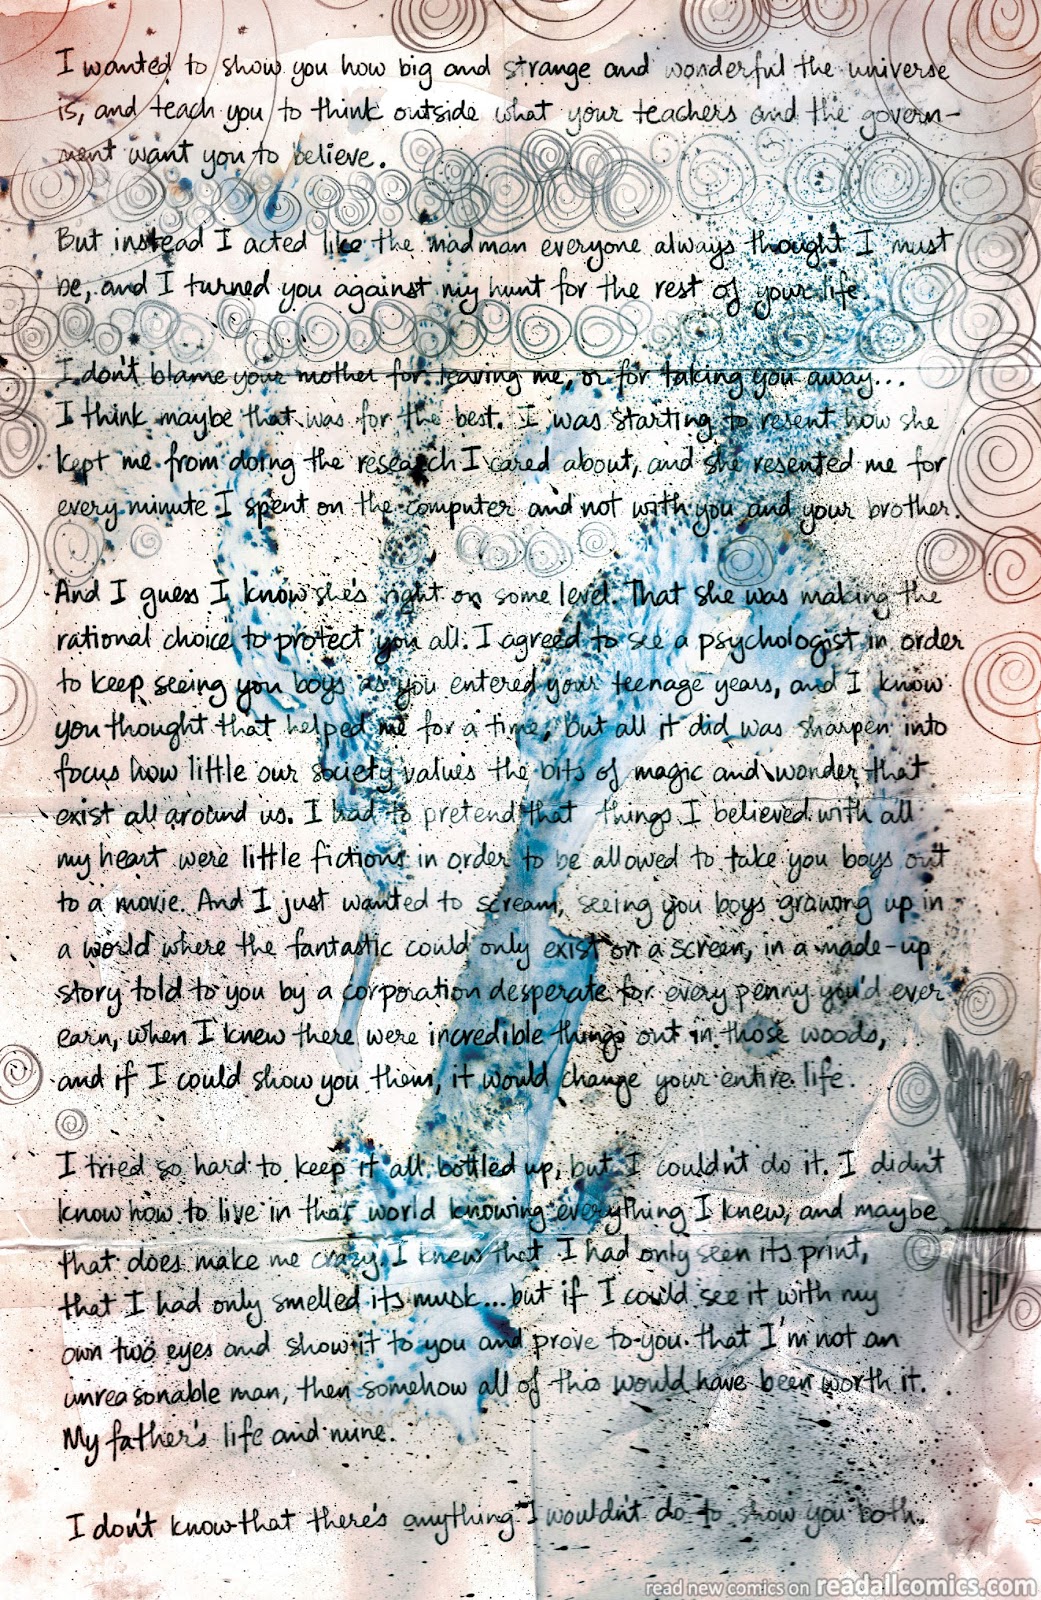 I wanted to show you how big and strange and wonderful the universe
is, and teach you to think outside what your teachers and the govern-
ment want you to believe.
But instead I acted like the madman everyone always thought I must
be, and I turned you against my hunt for the rest of your life.
I don't blame your mother for leaving me, or for taking you away...
I think maybe that was for the best. I was starting to resent how she
kept me from doing the research I cared about, and she resented me for
every minute I spent on the computer and not with you and your brother.
And I guess I know she's right on some level. That she was making the
rational choice to protect you all. I agreed to see a psychologist in order
to keep seeing you boys as you entered your teenage years, and I know
you thought that helped me for a time, but all it did was sharpen into
focus how little our society values the bits of magic and wonder that
exist all around us. I had to pretend that things I believed with all
my heart were little fictions in order to be allowed to take you boys out
to a movie. And I just wanted to scream, seeing you boys growing up in
a world where the fantastic could only exist on a screen, in a made-up
story told to you by a corporation desperate for every penny you'd ever
earn, when I knew there were incredible things out in those woods,
and if I could show you them, it would change your entire life.
I tried so hard to keep it all bottled up, but I couldn't do it. I didn't
know how to live in that world knowing everything I knew, and maybe
that does make me crazy. I knew that I had only seen its print,
that I had only smelled its musk... but if I could see it with my
own two eyes and show it to you and prove to you that I'm not an
unreasonable man, then somehow all of this would have been worth it.
My father's life and mine.
I don't know that there's anything I wouldn't do to show you both.
read new comics on readallcomics.com